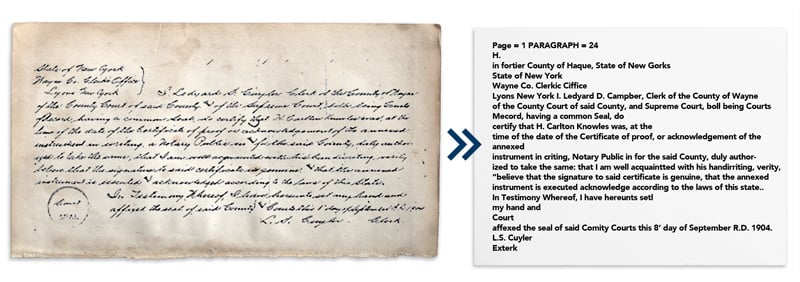 State of New York
Wayne Co. Clerk's Office
Lyons New York
I Ledyard S. Cuyler Clerk of the County of Wayne
of the County Court of said County & of the Supreme Court, both being Courts
of Record, having a common Seal, do certify that H. Carlton Knowles was, at the
time of the date of the Certificate of proof or acknowledgement of the annexed
instrument in writing, a Notary Public in & for the said County, duly author-
ized to take the same, that I am well acquainted with his handwriting, verily
believe that the signature to said certificate is genuine & that the annexed
instrument is executed & acknowledged according to the laws of this State.
In Testimony Whereof, I have hereunto set my hand and
affixed the seal of said County & Courts this 8' day of September A.D. 1904
L.S. Cuyler Clerk.
Court
SEAL
Page = 1 PARAGRAPH = 24
H.
in fortier County of Haque, State of New Gorks
State of New York
Wayne Co. Clerkic Ciffice
Lyons New York I. Ledyard D. Campber, Clerk of the County of Wayne
of the County Court of said County, and Supreme Court, boll being Courts
Mecord, having a common Seal, do
certify that H. Carlton Knowles was, at the
time of the date of the Certificate of proof, or acknowledgement of the
annexed
instrument in criting, Notary Public in for the said County, duly author-
ized to take the same: that I am well acquaintted with his handirriting, verity,
"believe that the signature to said certificate is genuine, that the annexed
instrument is executed acknowledge according to the laws of this state..
In Testimony Whereof, I have hereunts setl
my hand and
Court
affexed the seal of said Comity Courts this 8' day of September R.D. 1904.
L.S. Cuyler
Exterk